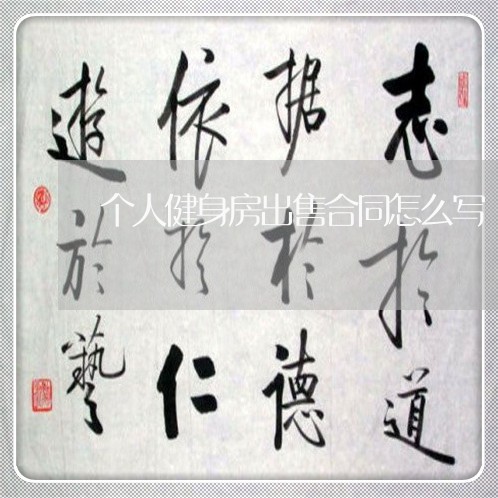 志於道
据於德
依於仁
遊於藝
个人健身房出售合同怎么写